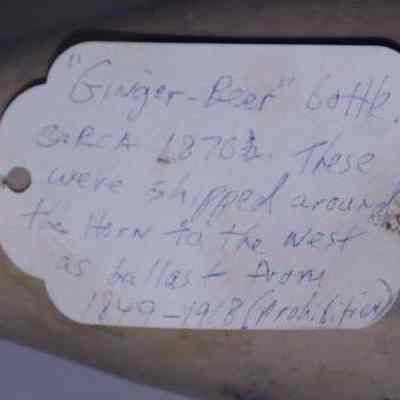 "Ginger-Beer" bottle.
CIRCA 1870's. These
were shipped around
the Horn to the West
as ballast from
1849-1918 (Prohibition)